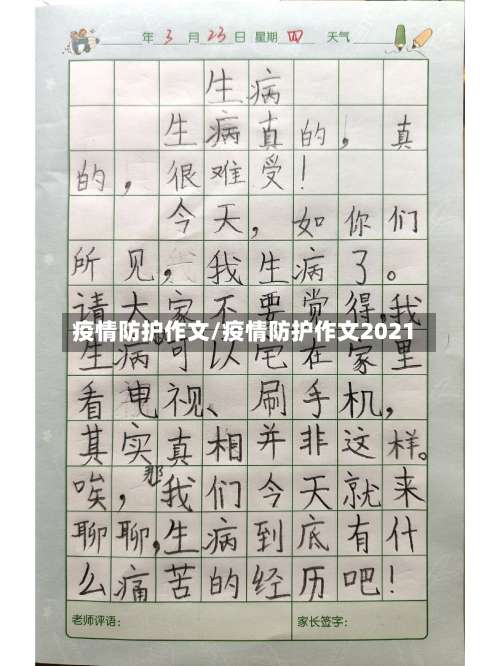 年3月23日 星期 四 天气
生病
生病真的，真
的，很难受！
今天，如你们
所见，我生病了。
请大家不要觉得我
疫情防护作文/疫情防护作文2021
生病可以宅在家里
看电视、刷手机，
其实真相并非这样。
唉，那我们今天就来
聊聊，生病到底有什
么痛苦的经历吧！
老师评语： 家长签字：